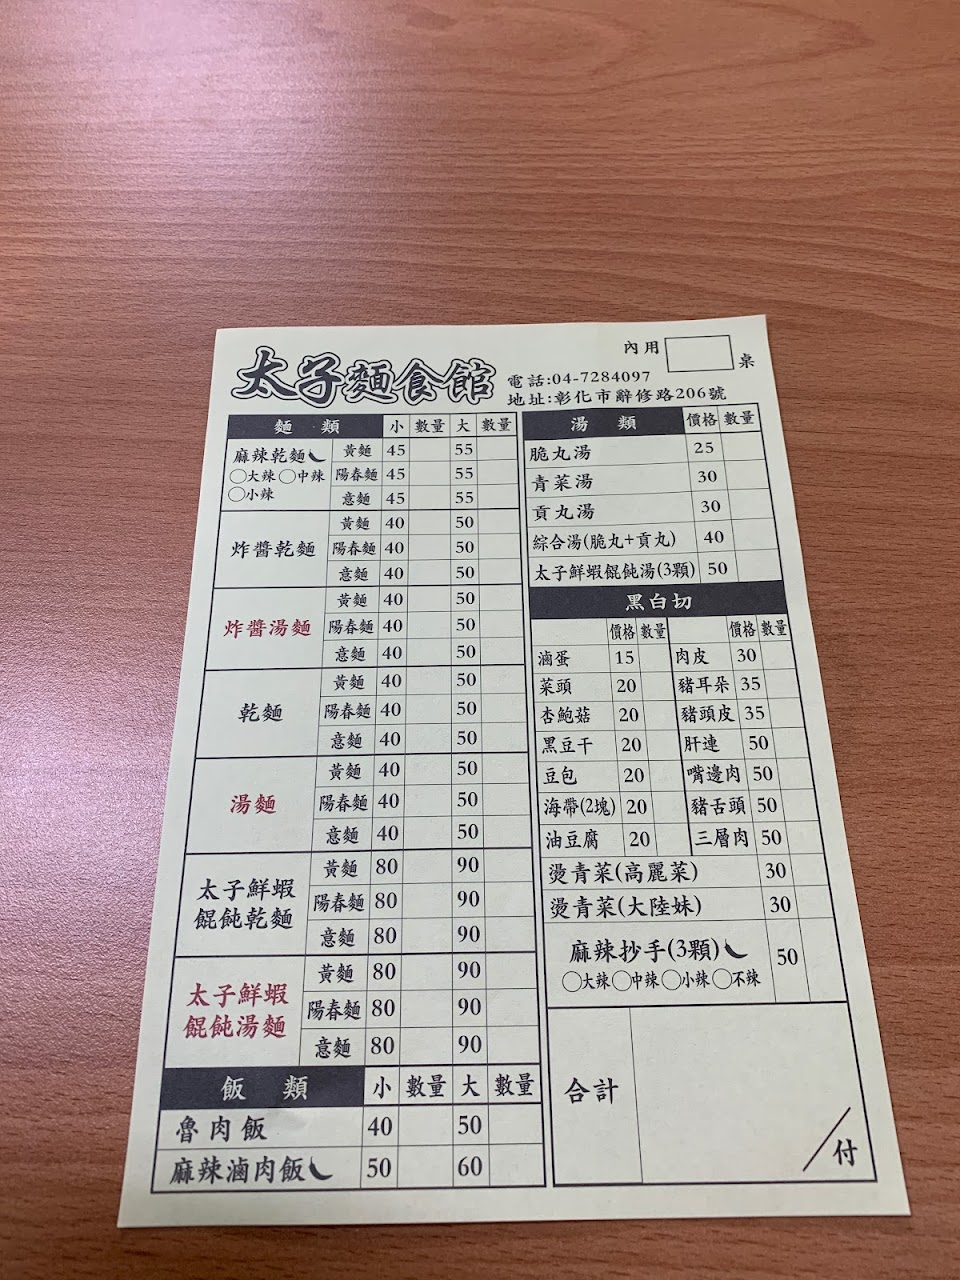 內用 桌
太子麵食館
電話:04-7284097
地址:彰化市辭修路206號
麵類 小 數量 大 數量
麻辣乾麵 黃麵 45 55
○大辣○中辣 陽春麵 45 55
○小辣 意麵 45 55
炸醬乾麵
黃麵 40 50
陽春麵 40 50
意麵 40 50
炸醬湯麵
黃麵 40 50
陽春麵 40 50
意麵 40 50
乾麵
黃麵 40 50
陽春麵 40 50
意麵 40 50
湯麵
黃麵 40 50
陽春麵 40 50
意麵 40 50
太子鮮蝦
餛飩乾麵
黃麵 80 90
陽春麵 80 90
意麵 80 90
太子鮮蝦
餛飩湯麵
黃麵 80 90
陽春麵 80 90
意麵 80 90
飯類 小 數量 大 數量
魯肉飯 40 50
麻辣滷肉飯 50 60
湯類 價格 數量
脆丸湯 25
青菜湯 30
貢丸湯 30
綜合湯(脆丸+貢丸) 40
太子鮮蝦餛飩湯(3顆) 50
黑白切
價格 數量 價格 數量
滷蛋 15 肉皮 30
菜頭 20 豬耳朵 35
杏鮑菇 20 豬頭皮 35
黑豆干 20 肝連 50
豆包 20 嘴邊肉 50
海帶(2塊) 20 豬舌頭 50
油豆腐 20 三層肉 50
燙青菜(高麗菜) 30
燙青菜(大陸妹) 30
麻辣抄手(3顆) 50
○大辣○中辣○小辣○不辣
合計
/付